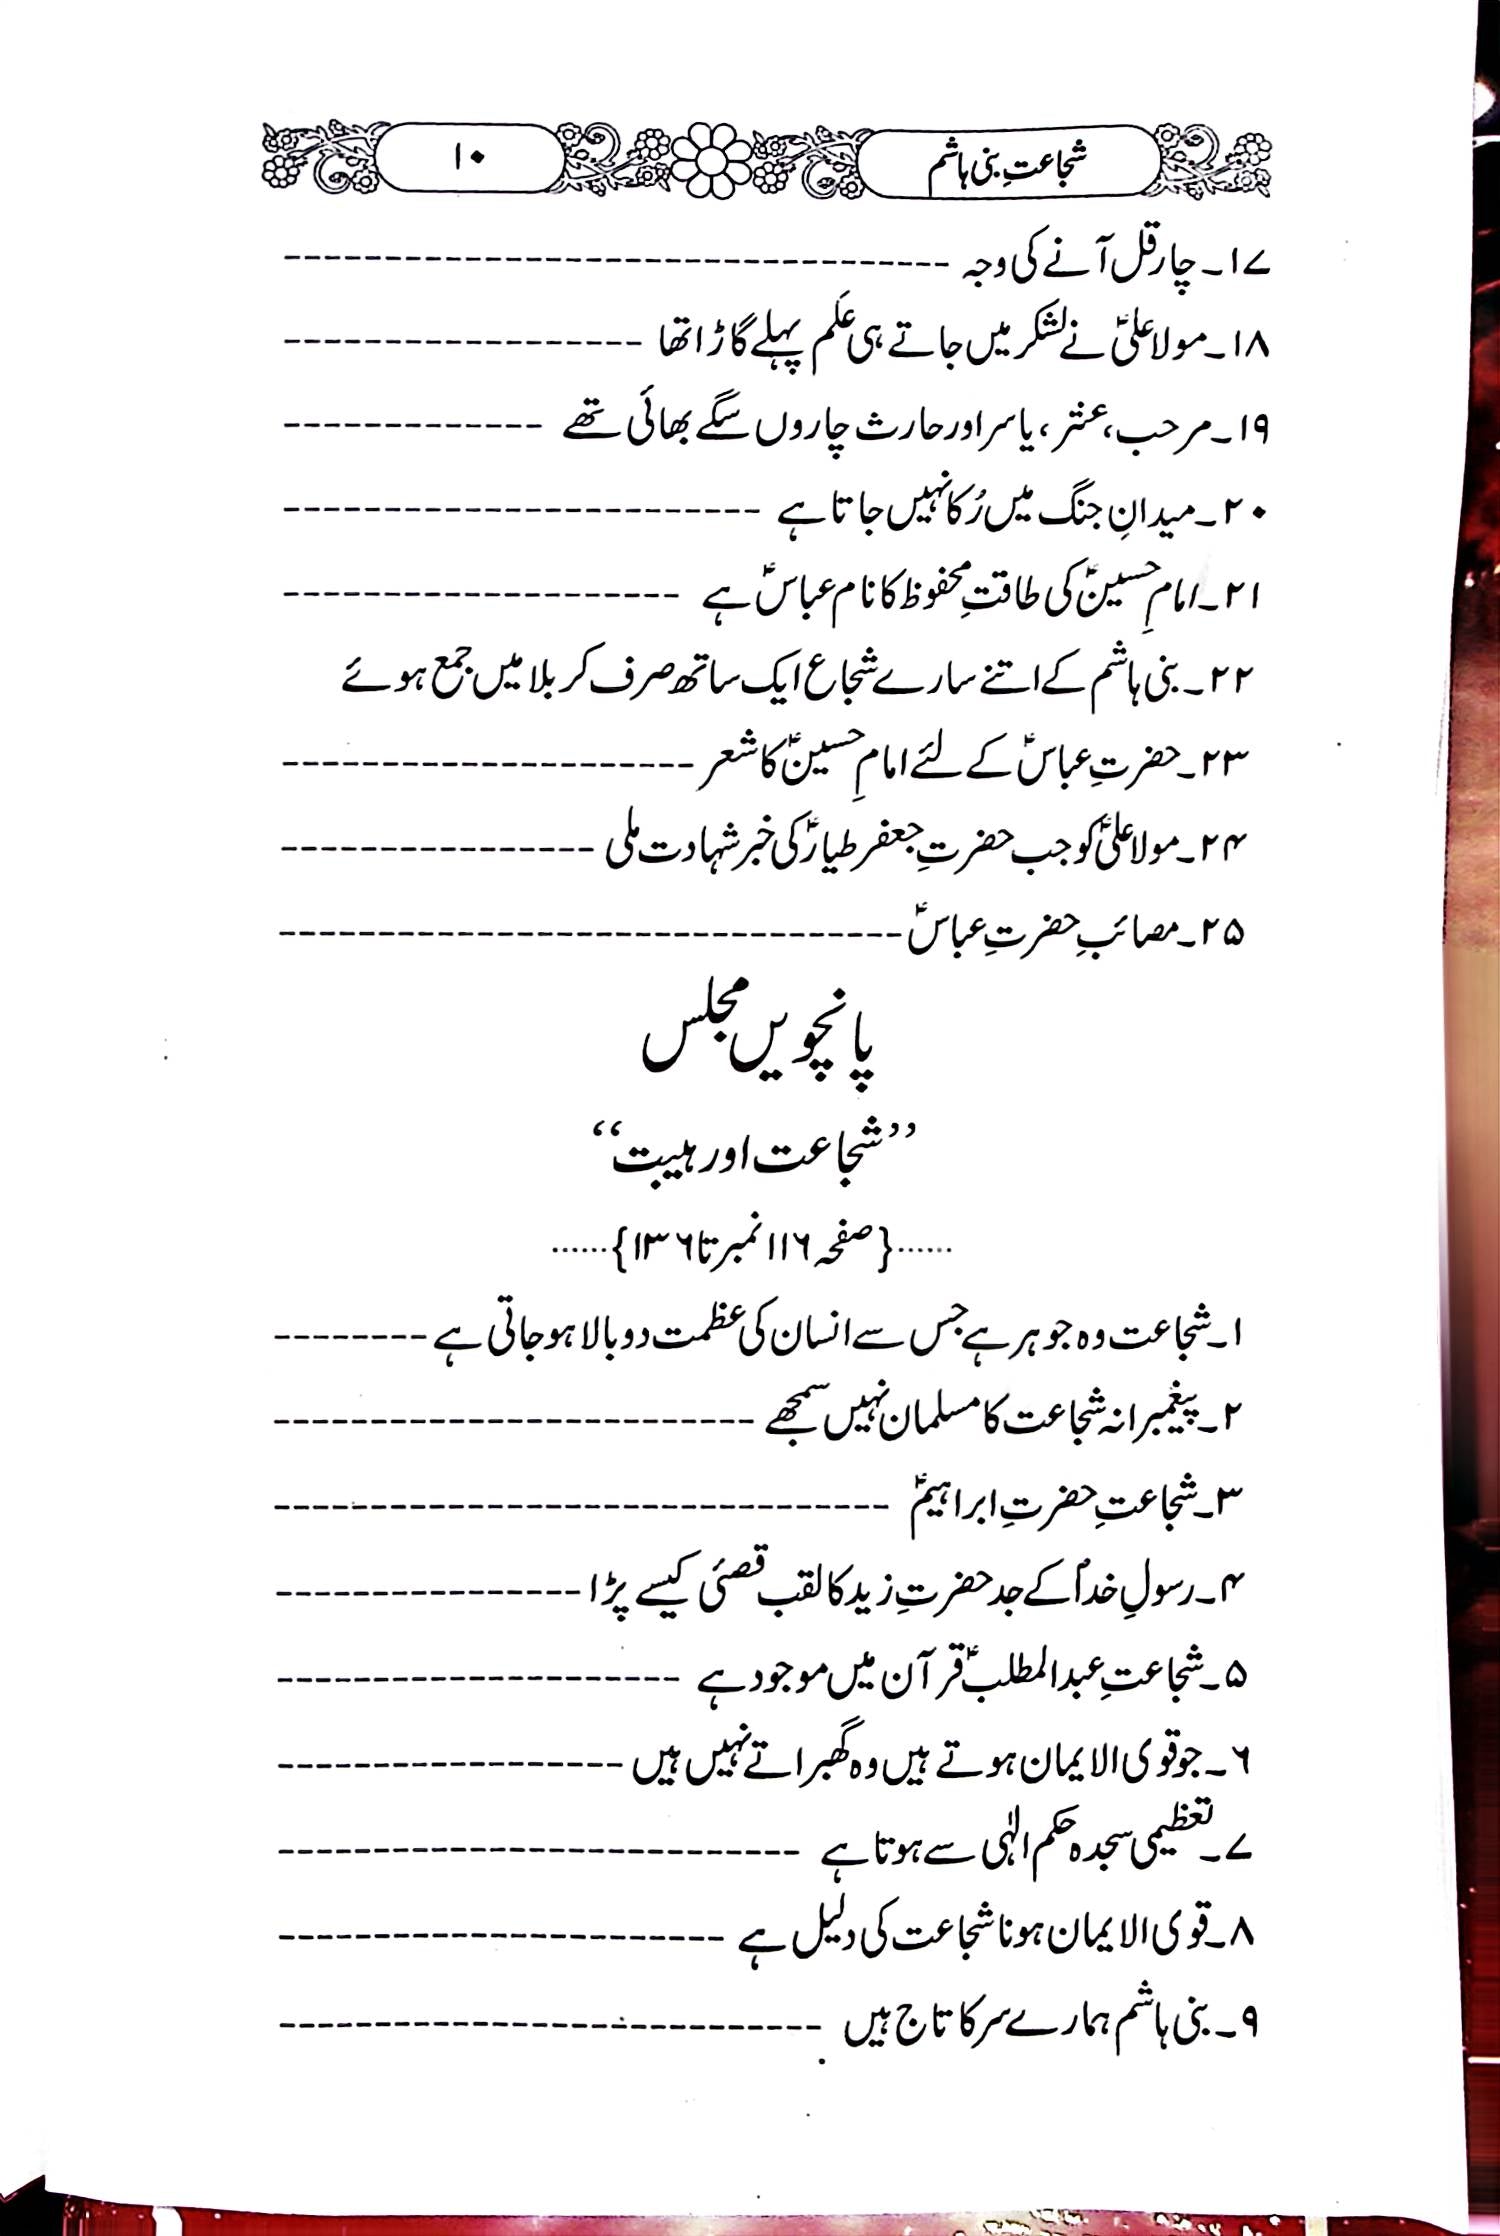 شجاعتِ بنی ہاشم
۱۰
۱۷۔ چار قل آنے کی وجہ ---------------------------------
۱۸۔ مولا علیؑ نے لشکر میں جاتے ہی عَلم پہلے گاڑا تھا ------------------
۱۹۔ مرحب، عنتر، یاسر اور حارث چاروں سگے بھائی تھے -------------
۲۰۔ میدانِ جنگ میں رُکا نہیں جاتا ہے ------------------------
۲۱۔ امامِ حسینؑ کی طاقتِ محفوظ کا نام عباسؑ ہے --------------------
۲۲۔ بنی ہاشم کے اتنے سارے شجاع ایک ساتھ صرف کربلا میں جمع ہوئے
۲۳۔ حضرتِ عباسؑ کے لئے امامِ حسینؑ کا شعر ---------------------
۲۴۔ مولا علیؑ کو جب حضرتِ جعفر طیارؑ کی خبر شہادت ملی ----------------
۲۵۔ مصائبِ حضرتِ عباسؑ --------------------------------
پانچویں مجلس
”شجاعت اور ہیبت“
......{صفحہ ۱۱۶ نمبر تا ۱۳۶}......
۱۔ شجاعت وہ جوہر ہے جس سے انسان کی عظمت دوبالا ہوجاتی ہے --------
۲۔ پیغمبرانہ شجاعت کا مسلمان نہیں سمجھے -------------------------
۳۔ شجاعتِ حضرتِ ابراہیمؑ --------------------------------
۴۔ رسولِ خداؐ کے جد حضرتِ زید کا لقب قصّئی کیسے پڑا ----------------
۵۔ شجاعتِ عبدالمطلبؑ قرآن میں موجود ہے ---------------------
۶۔ جو قوی الایمان ہوتے ہیں وہ گھبراتے نہیں ہیں ------------------
۷۔ تعظیمی سجدہ حکم الٰہی سے ہوتا ہے ---------------------------
۸۔ قوی الایمان ہونا شجاعت کی دلیل ہے -----------------------
۹۔ بنی ہاشم ہمارے سر کا تاج ہیں ----------------------------